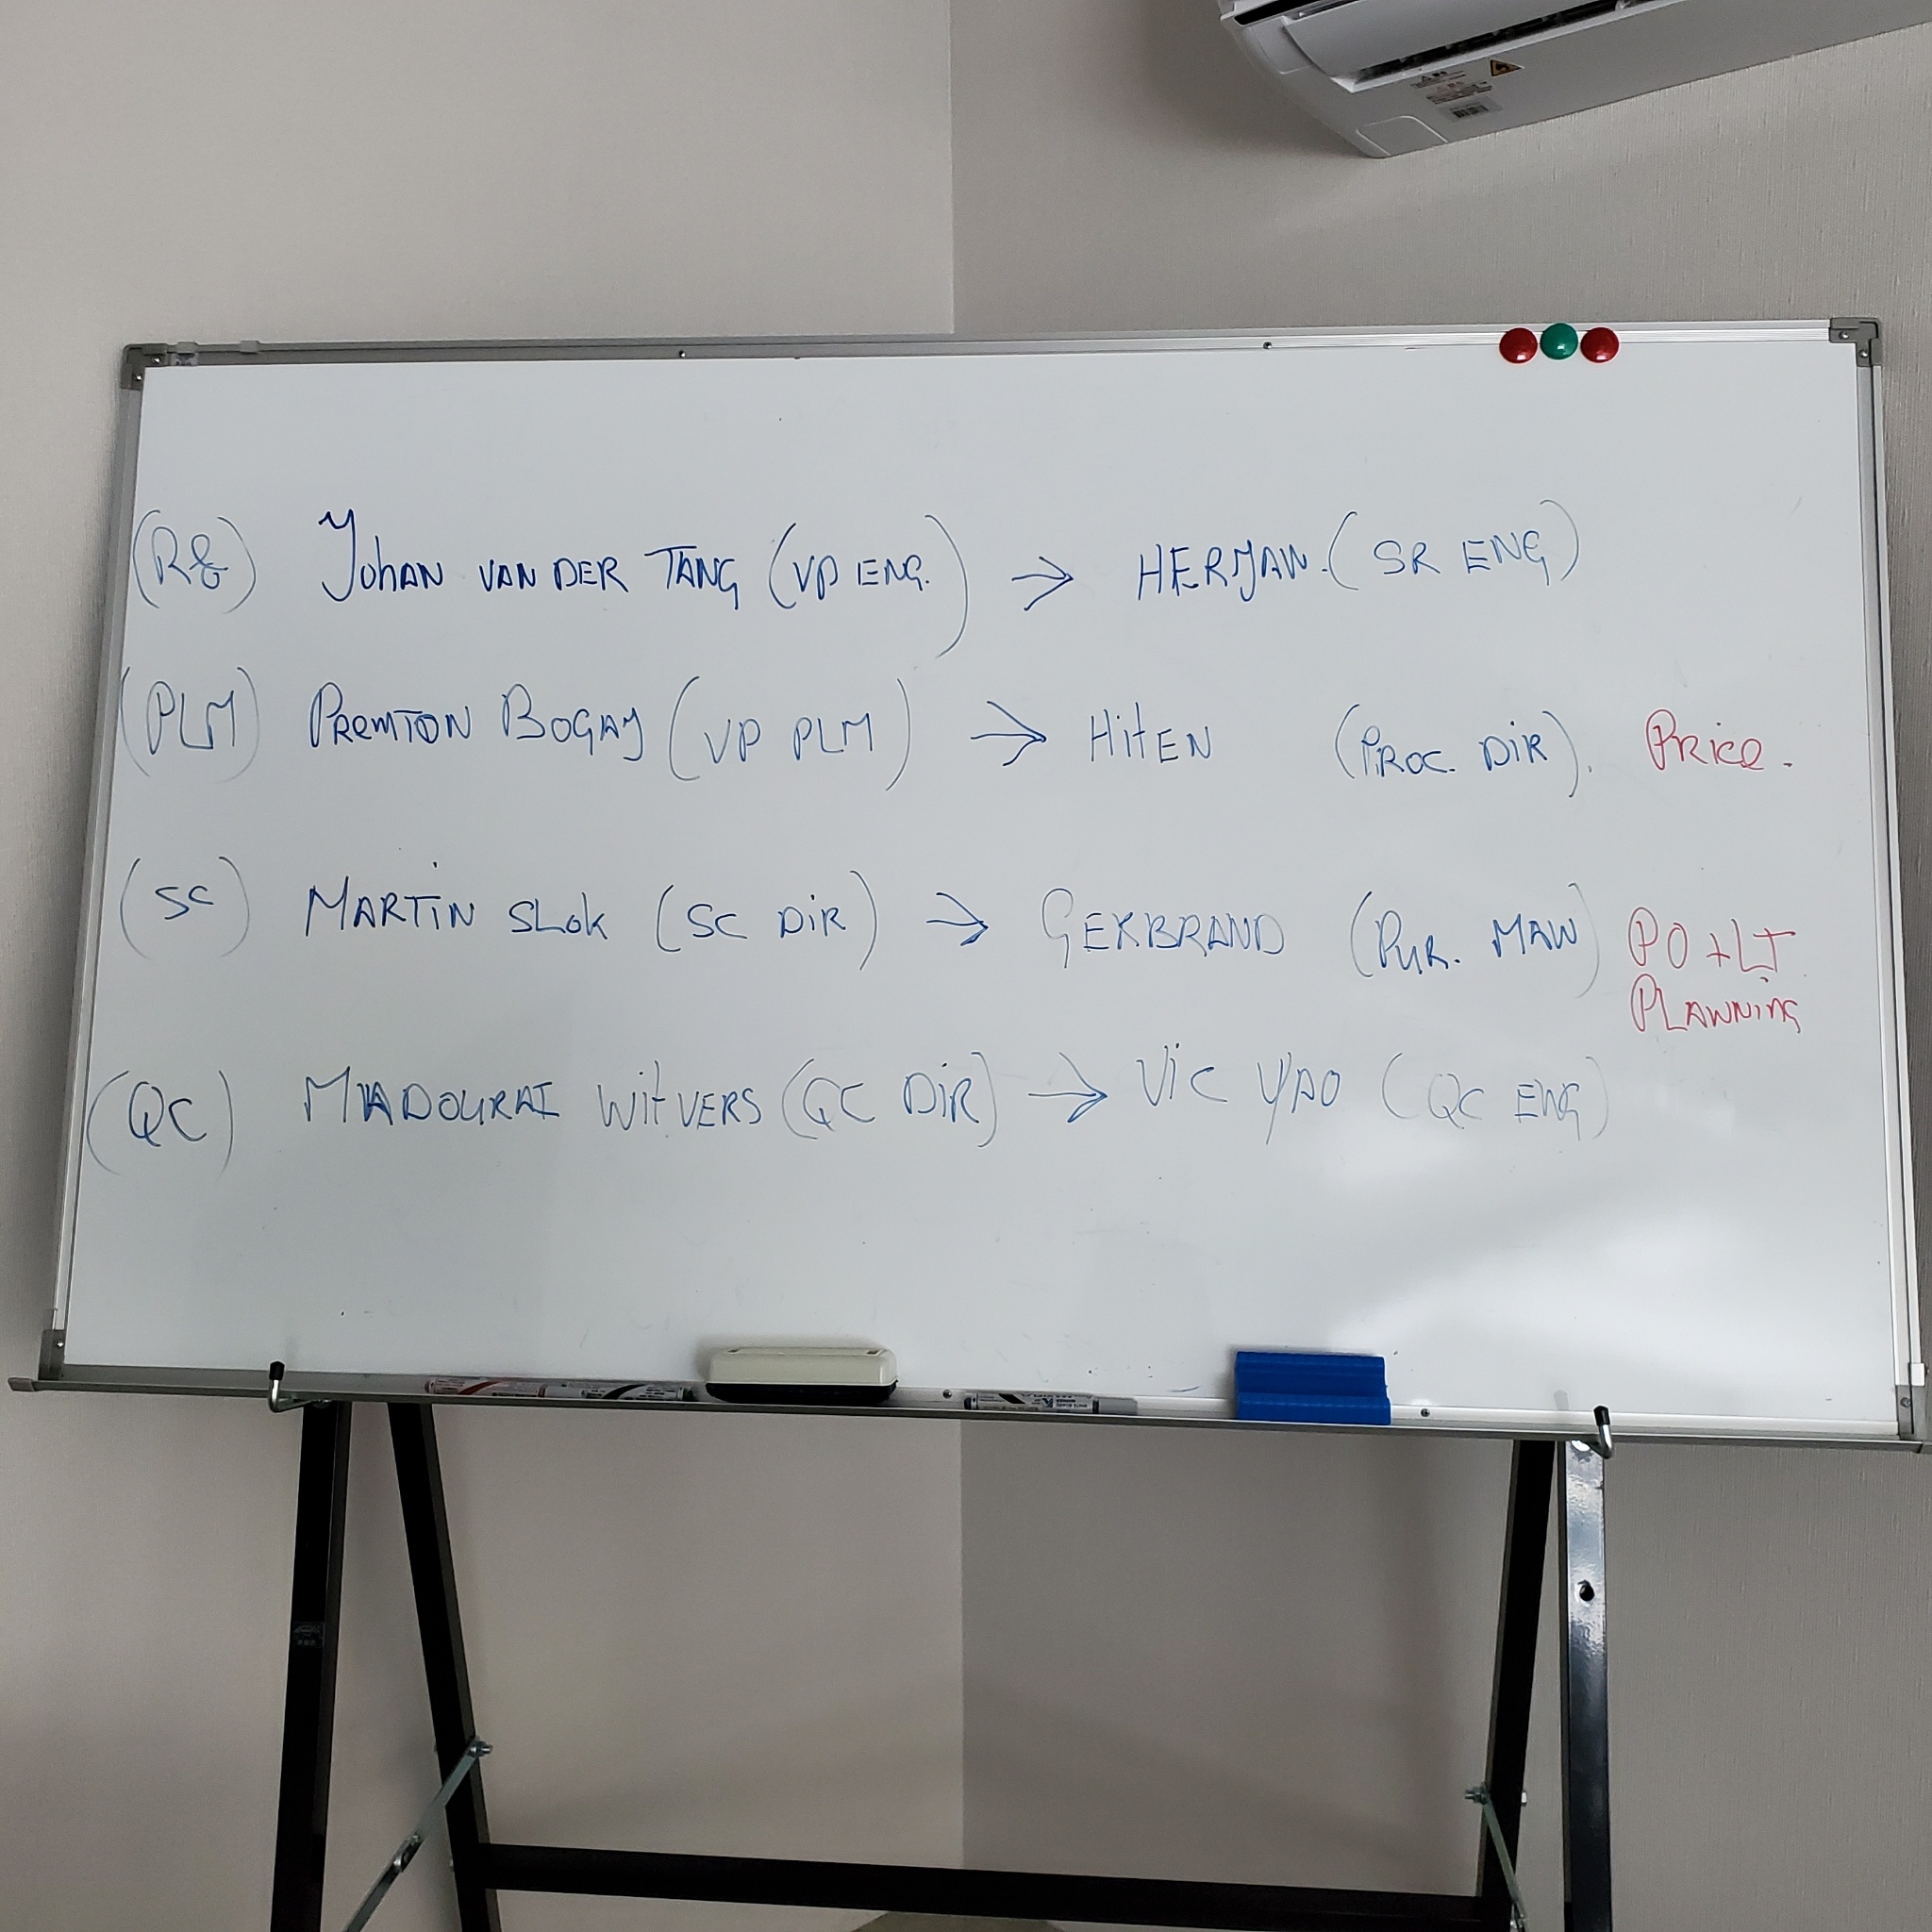 (R&) Johan VAN DER TANG (VP ENG.) → HERJAN. (SR ENG)
(PLM) PREMTON BOGAJ (VP PLM) → HitEN (PROC. DiR). Price.
(SC) MARTiN SLOK (SC DiR) → GEKBRAND (PUR. MAN) PO + LT
PLANNiNG
(QC) WitVERS (QC DiR) → ViC YAO (QC ENG)